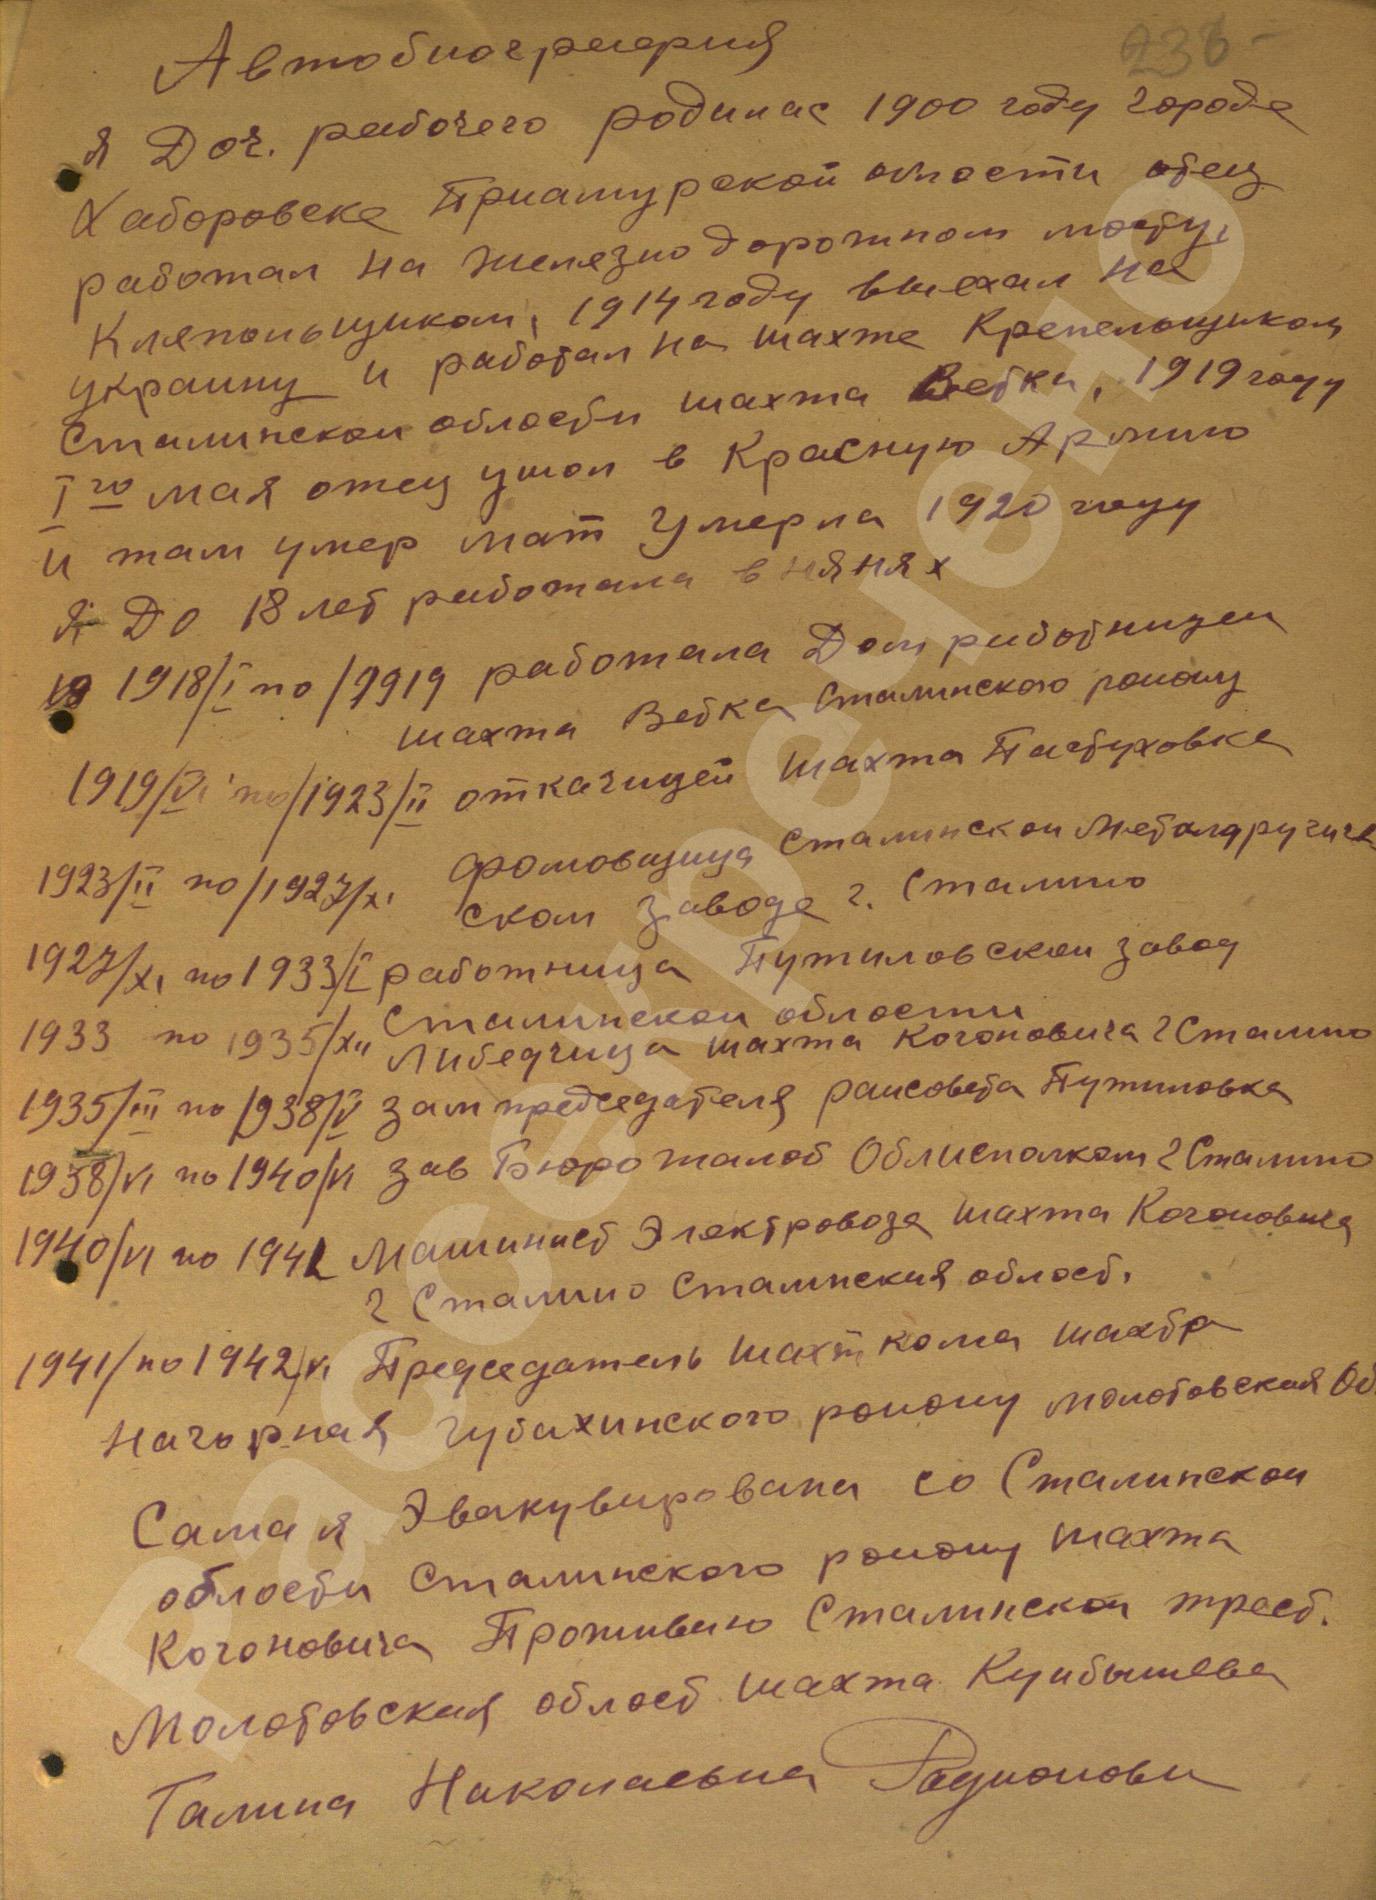 238-
Автобиография
Я Доч. рабочего родилас 1900 году городе
Хаборовске Приамурской области отец
работал на железно дорожном мосту,
Кляпольщиком, 1914 году выехал на
украину и работал на шахте Крепельщиком
Сталинской области шахта Ветка, 1919 году
I го мая отец ушол в Красную Армию
и там умер мат умерла 1920 году
Я До 18 лет работала в нянях
1918/I по /1919 работала Дом работницей
шахта Ветка Сталинского району
1919/VI по/1923/II откатчицей шахта Пастуховка
1923/II по/1927/XI фомовщица Сталинской
ском заводе г. Сталино
1927/XI по 1933/I работница Путиловской завод
Сталинской области
1933 по 1935/XII шахта Когоновича г Сталино
1935/III по 1938/V зам председателя раисовета Путиловка
1938/VI по 1940/VI зав Бюро жалоб Облисполком г Сталино
1940/VI по 1941 Машинист Электровоза шахта Когоновича
г Сталино Сталинская област.
1941/по 1942/VI Председатель шахткома шахта
Нагорная Губахинского району молотовская Об
Сама я Эвакувирована со Сталинской
области Сталинского району шахта
Когоновича Проживаю Сталинской трест.
Молотовская област шахта Куибышева
Галина Николаевна Радионова
Рассекречено